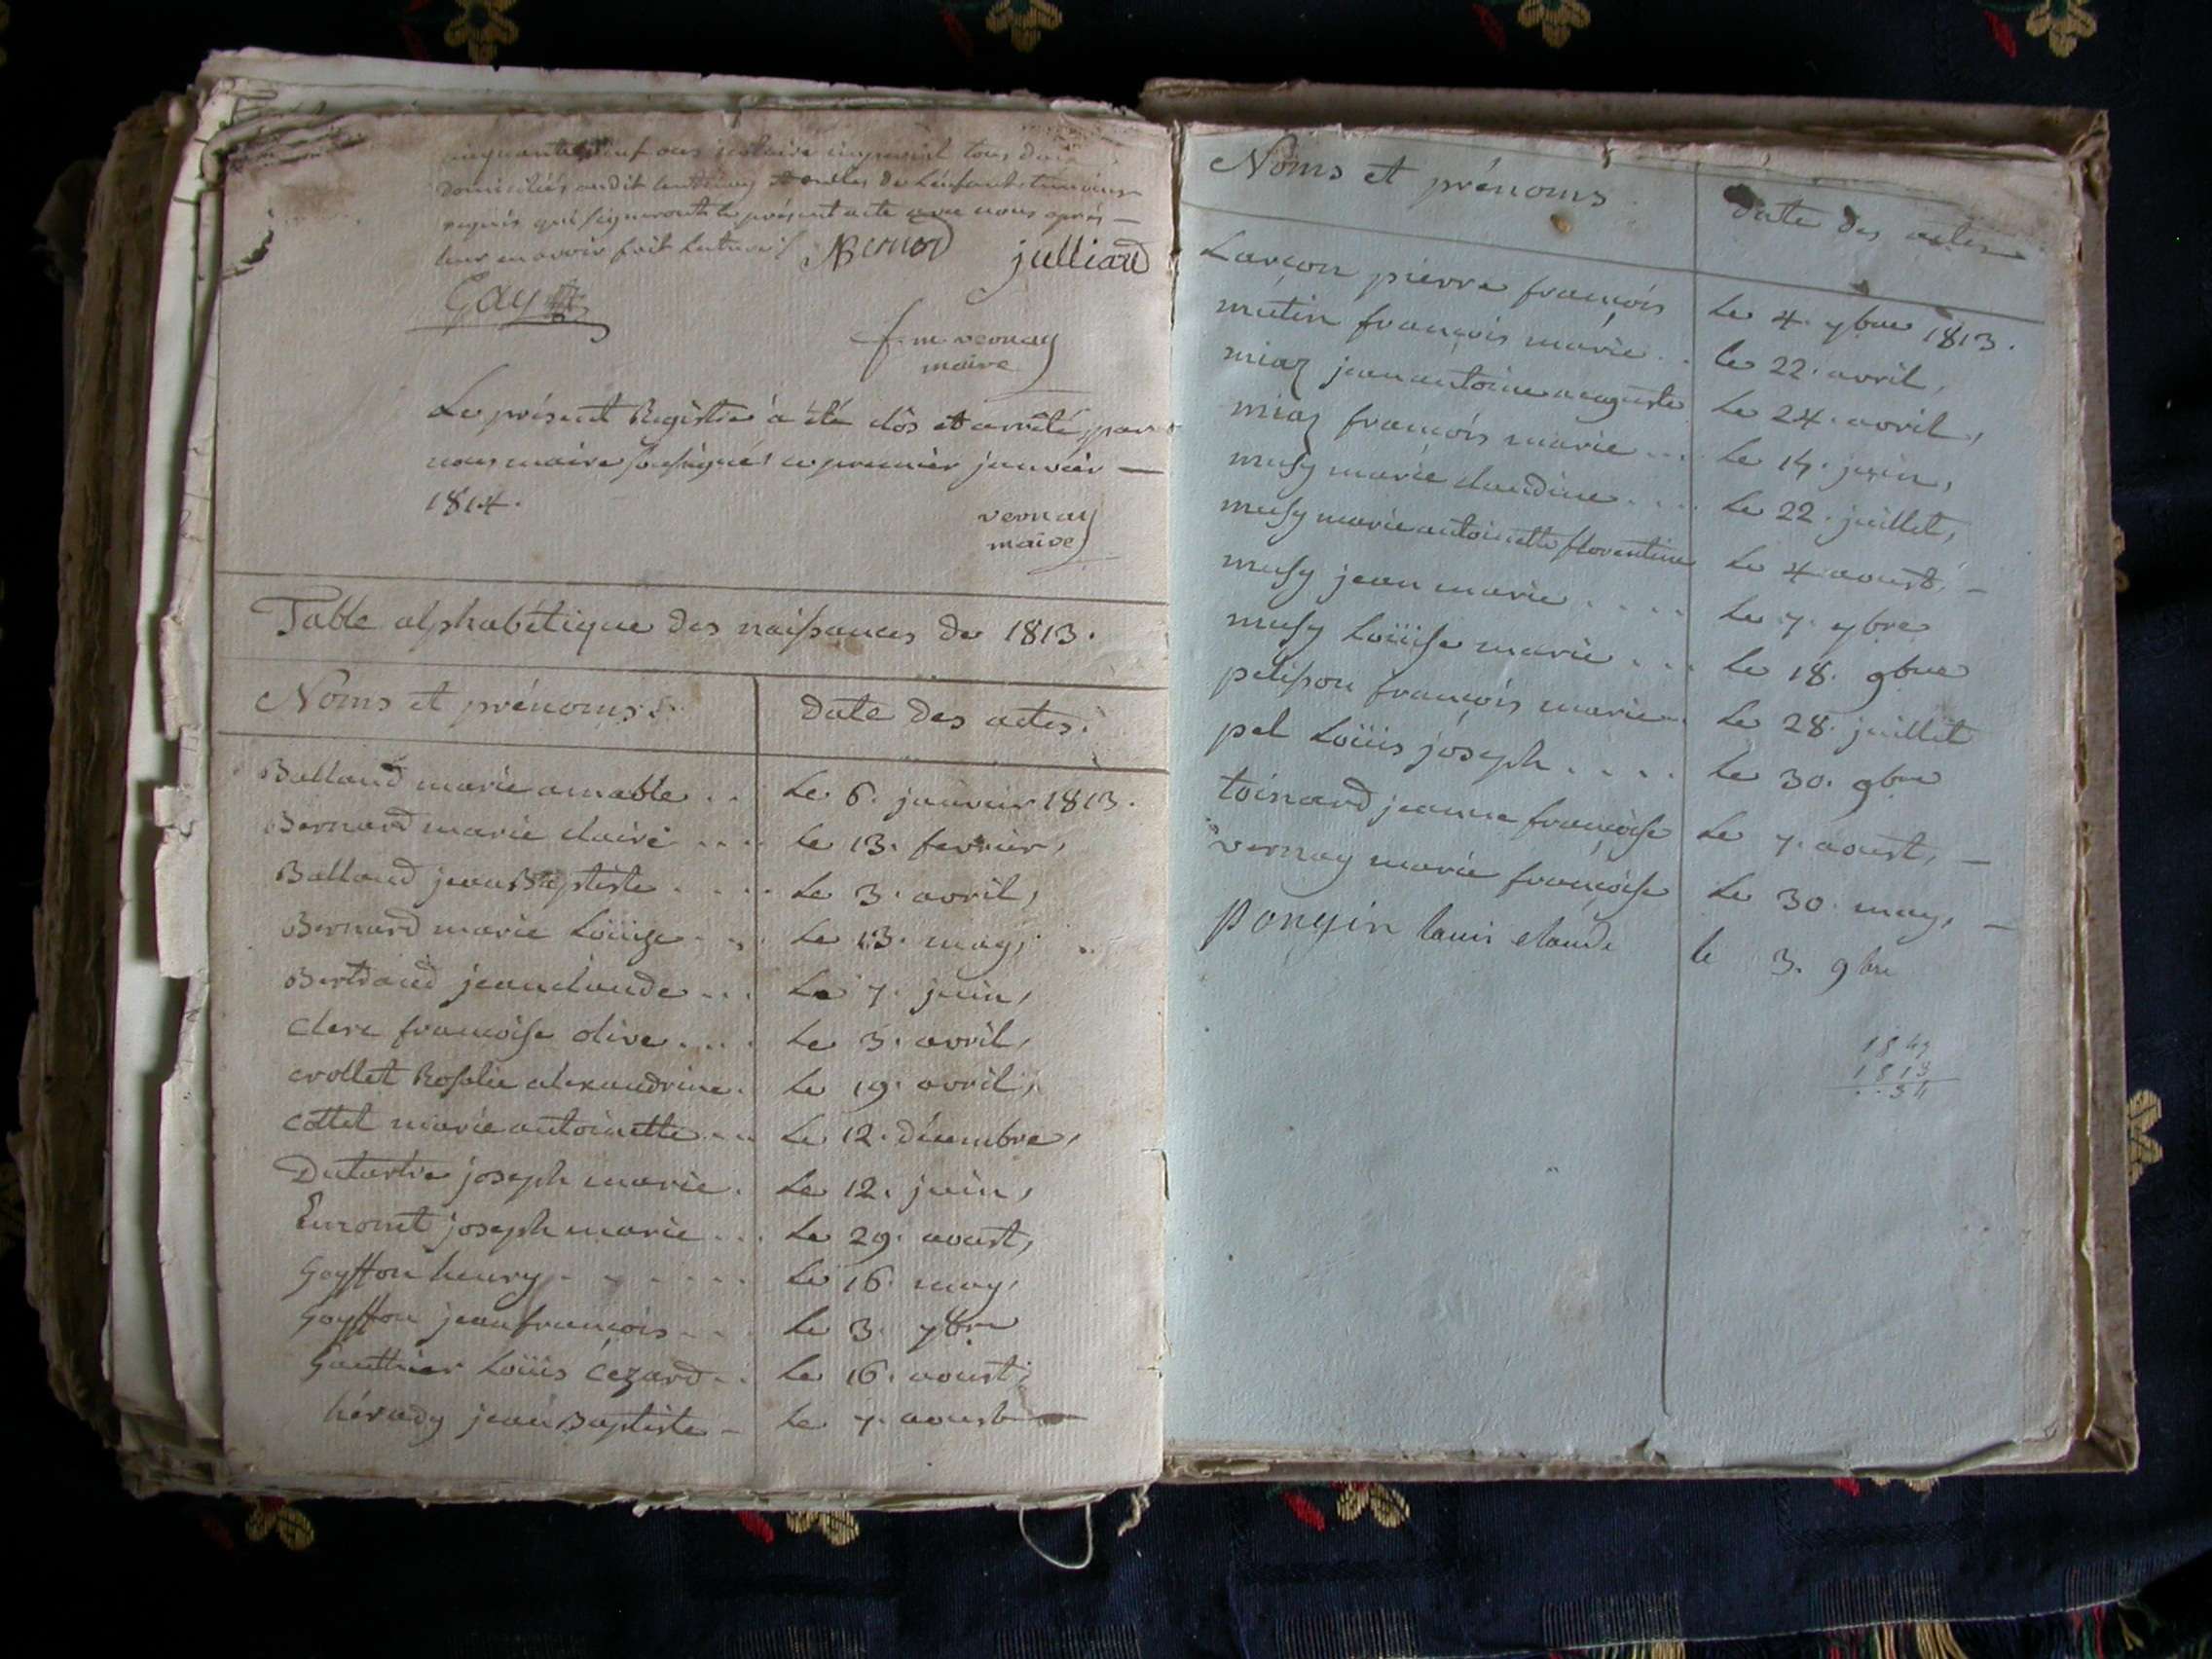 domiciliés audit
requis qui signeront le présent acte avec nous après —
leur en avoir fait lecture / ABernard julliard
Gay
f. m. vernay
maire
Le présent Registre a été clôs et arrêté, par
nous maire soussigné, ce premier janvier —
1814.
vernay
maire
Table alphabétique des naissances de 1813.
Noms et prénoms. date des actes.
Balland marie amable . . Le 6. janvier 1813.
Bernard marie claire . . . . Le 13. fevrier,
Balland jean Baptiste . . . . Le 3. avril,
Bernard marie Loüise . . . Le 13. may,
Bertrand jean claude . . . Le 7. juin,
Clerc françoise olive . . . . Le 3. avril,
crollet Rosalie alexandrine . Le 19. avril,
cottet marie antoinette . . . Le 12. décembre,
Dutartre joseph marie . Le 12. juin,
joseph marie . . . Le 29. aoust,
Goyffon henry . . . . . . Le 16. may,
Goyffon jean françois . . . Le 3. 7bre
Gauthier Loüis Cezard . . Le 16. aoust,
hérady jean Baptiste — Le 7. aoust —
Noms et prénoms date des actes
Larçon pierre françois Le 4. 7bre 1813.
mutin françois marie . . Le 22. avril,
miaz jean antoine auguste Le 24. avril,
miaz françois marie . . . Le 14. juin,
musy marie claudine . . . . Le 22. juillet,
musy marie antoinette florentine Le 4 aoust. —
musy jean marie . . . . Le 7. 7bre
musy Loüise marie . . . Le 18. 9bre
pelisson françois marie . Le 28. juillet
pel Loüis joseph . . . . Le 30. 9bre
toinard jeanne françoise Le 7. aoust, —
vernay marie françoise Le 30. may, —
Pongin louis claude le 3. 9bre
1847
1813
. . 34